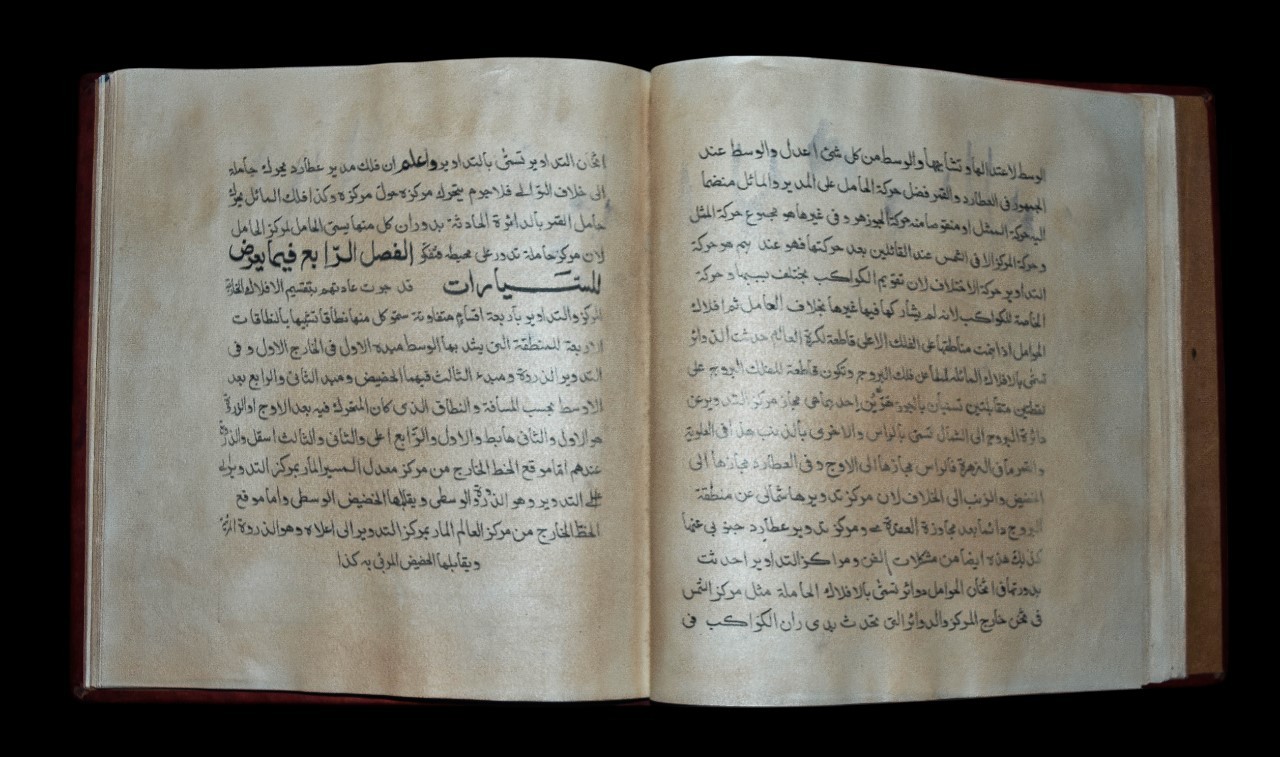 الوسط لاعتدالها و تشابهها والوسط من كل شئ اعدل والوسط عند
الجمهور فى العطارد والقمر فضل حركة الحامل على المدير والمائل منضما
اليه حركة الممثل او منقوصا منه حركة الجوزهر و فى غيرها هو مجموع حركة المثل
و حركة المركز الا فى الشمس عند القائلين بعد حركتها فهو عند هم هو حركة
التداوير حركة الاختلاف لان تقويم الكواكب يختلف بسببها و حركة
الخاصة للكواكب لانه لم يشاركها فيها غيرها بخلاف الحامل ثم افلاك
الحوامل اذا مناطقها على الفلك الاعلى قاطعة لكرة العالم حدثت الدوائر
تسمى بالافلاك المائلة عن فلك البروج وتكون قاطعة للفلك البروج على
نقطتين متقابلتين تسميان بالجوزهرين احديهما هى مجاز مركز التدوير عن
دائرة البروج الى الشمال تسمى بالراس والاخرى بالذنب هذا فى العلوية
والقمر ما فى الزهرة فالراس مجازها الى الاوج و فى العطارد مجازها الى
الحضيض والذنب الى الخلاف لان مركز تدويرها شمالى عن منطقة
البروج دائما بعد مجاوزة العقدة ومركز تدوير عطارد جنوبى عنها
كذلك هذه ايضا من مشكلات الفن ومراكز التداوير احدثت
بدورتها فى اثخان الحوامل دوائر تسمى بالافلاك الحاملة مثل مركز الشمس
فى ثخن خارج المركز والدوائر التى تحدث بدوران الكواكب فى
اثخان التداوير تسمى بالتداوير واعلم ان فلك مدير عطارد يحرك حامله
الى خلاف التوالى فلاجرم يتحرك مركزه حول مركزه وكذا فلك المائل يحرك
حامل القمر بالدائرة الحادثة بدوران كل منها يسمى الحامل لمركز الحامل
لان مركز حاملة تدور على محيطه الفصل الرّابع فيما يعرض
للستيارات قد جرت عادتهم بتقسيم الافلاك الخارجة
المركز والتداوير باربعة اقسام متفاوتة سمو كل منها نطاقا تشبيها بالنطاقات
الاربعة للمنطقة التى يشد بها الوسط مبدء الاول فى الخارج الاول و فى
التدوير الذروة ومبدء الثالث فيهما الحضيض ومبدء الثانى والرابع بعد
الاوسط بحسب المسافة والنطاق الذى كان المتحرك فيه بعد الاوج او الذروة
هو الاول والثانى هابط والاول والرّابع اعلى والثانى والثالث اسفل والذروة
عندهم اما موقع الخط الخارج من مركز معدل المسير المار بمركز التدوير الى
اعلى التدوير وهو الذروة الوسطى و يقابلها الحضيض الوسطى واما موقع
الخط الخارج من مركز العالم المار بمركز التدوير الى اعلاه وهو الذروة المرئية
ويقابلها الحضيض المرئى به كذا